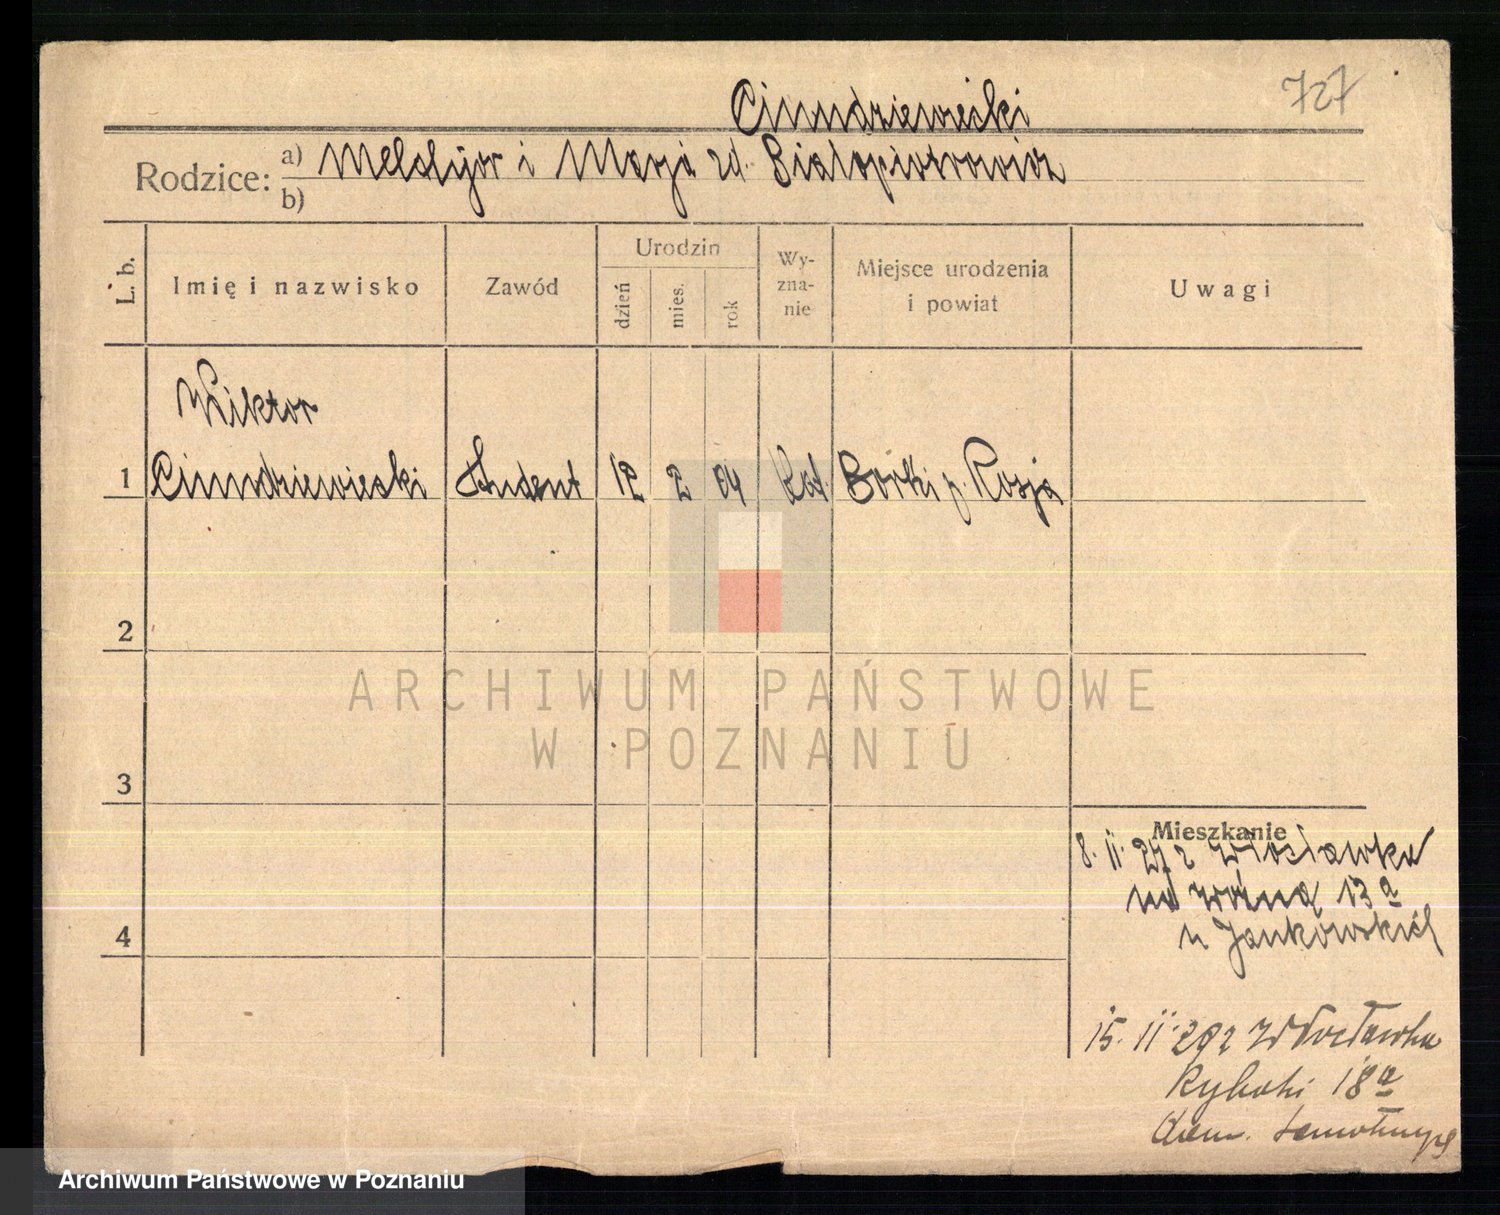 727
Ciundziewicki
Rodzice: a) Melchjor i Marja zd. Białopiotrowicz
b)
L. b.
Imię i nazwisko
Zawód
Urodzin
dzień
mies.
rok
Wy-
zna-
nie
Miejsce urodzenia
i powiat
Uwagi
Wiktor
1 Ciundziewicki Student 12 2 04 Kat. Borki p. Rosja
2
3
4
Mieszkanie
8. II. 27 z Włocławka
na Woźną 13 a
u Jankowskich
15. II 29 z Włocławka
Rybaki 18 a
Dom
ARCHIWUM PAŃSTWOWE
W POZNANIU
Archiwum Państwowe w Poznaniu